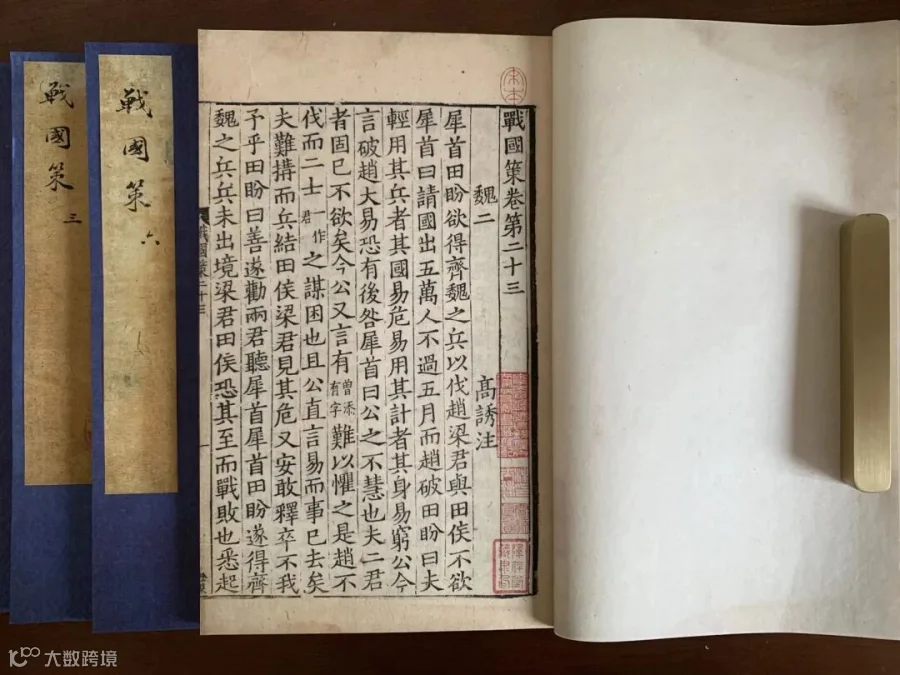 戰國策卷第二十三
魏二 高誘注
犀首田盼欲得齊魏之兵以伐趙梁君與田侯不欲
犀首曰請國出五萬人不過五月而趙破田盼曰夫
輕用其兵者其國易危易用其計者其身易窮公今
言破趙大易恐有後咎犀首曰公之不慧也夫二君
者固已不欲矣今公又言有曾添有字難以懼之是趙不
伐而二士一作君之謀困也且公直言易而事已去矣
夫難搆而兵結田侯梁君見其危又安敢釋卒不我
予乎田盼曰善遂勸兩君聽犀首犀首田盼遂得齊
魏之兵兵未出境梁君田侯恐其至而戰敗也悉起
戰國策二十三
戰國策 六
戰國策 三
大数跨境